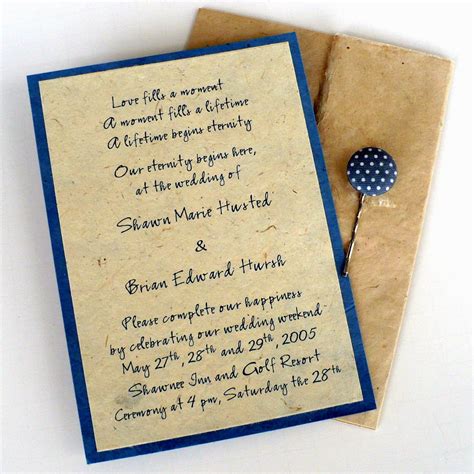 Love fills a moment
A moment fills a lifetime
A lifetime begins eternity
Our eternity begins here,
at the wedding of
Shawn Marie Husted
&
Brian Edward Hursh
Please complete our happiness
by celebrating our wedding weekend
May 27th, 28th and 29th, 2005
Shawnee Inn and Golf Resort
Ceremony at 4 pm, Saturday the 28th